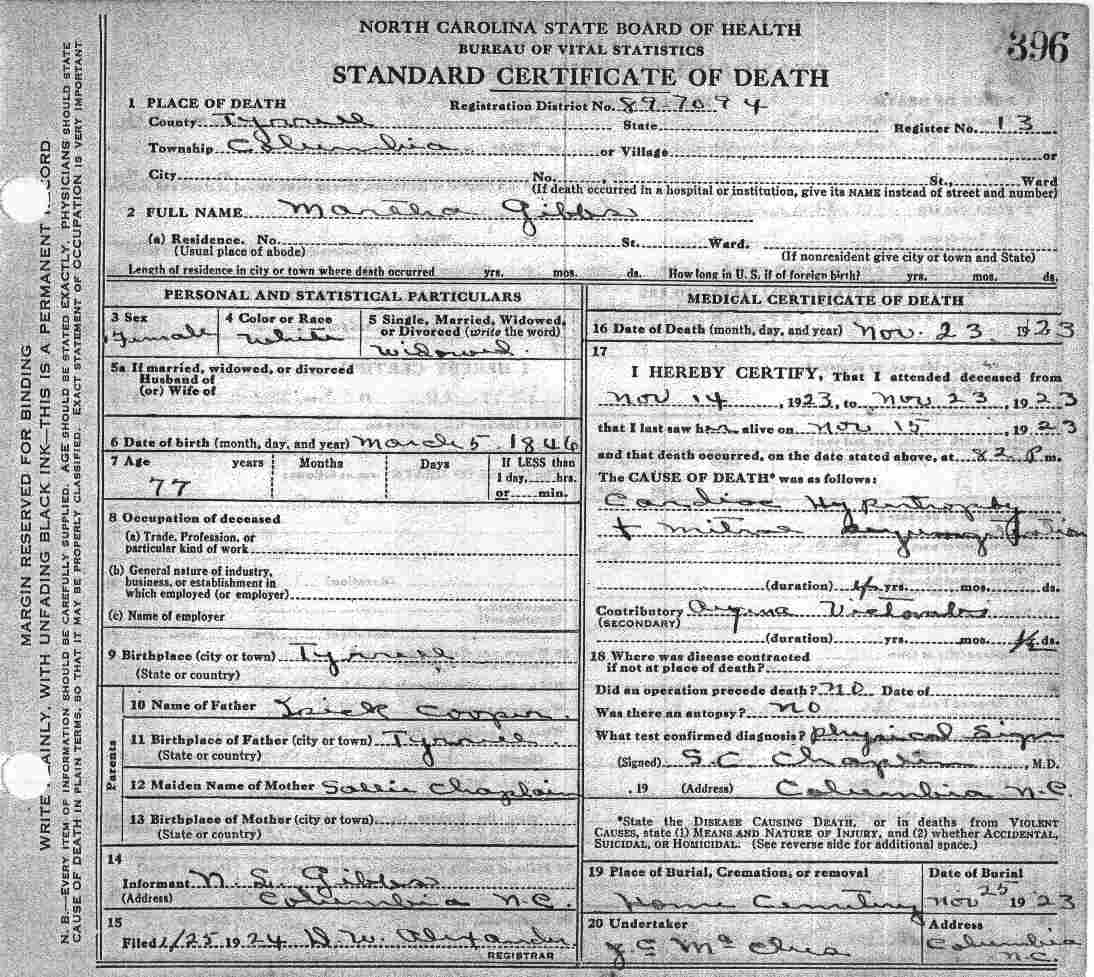 NORTH CAROLINA STATE BOARD OF HEALTH
BUREAU OF VITAL STATISTICS
396
STANDARD CERTIFICATE OF DEATH
1 PLACE OF DEATH Registration District No. 89-7094
County Tyrrell State Register No. 13
Township Columbia or Village or
City No. , St., Ward
(If death occurred in a hospital or institution, give its NAME instead of street and number)
2 FULL NAME Martha Gibbs
(a) Residence. No. St. Ward.
(Usual place of abode) (If nonresident give city or town and State)
Length of residence in city or town where death occurred yrs. mos. ds. How long in U. S. if of foreign birth? yrs. mos. ds.
PERSONAL AND STATISTICAL PARTICULARS
3 Sex 4 Color or Race 5 Single, Married, Widowed,
or Divorced (write the word)
Female White Widowed.
5a If married, widowed, or divorced
Husband of
(or) Wife of
6 Date of birth (month, day, and year) March 5 1846
7 Age years Months Days If LESS than
1 day, hrs.
or min.
77
8 Occupation of deceased
(a) Trade, Profession, or
particular kind of work
(b) General nature of industry,
business, or establishment in
which employed (or employer)
(c) Name of employer
9 Birthplace (city or town) Tyrrell
(State or country)
Parents
10 Name of Father Cooper.
11 Birthplace of Father (city or town)
(State or country)
12 Maiden Name of Mother Sallie Chaplain
13 Birthplace of Mother (city or town)
(State or country)
14
Informant N. S. Gibbs
(Address) Columbia N.C.
15
Filed 1/25 1924 D. W. Alexander
REGISTRAR
MEDICAL CERTIFICATE OF DEATH
16 Date of Death (month, day, and year) Nov. 23 1923
17
I HEREBY CERTIFY, That I attended deceased from
Nov 14, 1923, to Nov 23, 1923
that I last saw her alive on Nov 15, 1923
and that death occurred, on the date stated above, at P m.
The CAUSE OF DEATH* was as follows:
Cardiac Hypertrophy
+ Mitral
(duration) yrs. mos. ds.
Contributory
(SECONDARY)
(duration) yrs. mos. ds.
18 Where was disease contracted
if not at place of death?
Did an operation precede death? no Date of
Was there an autopsy? no
What test confirmed diagnosis? Physical Sign
(Signed) S. C. Chaplin, M.D.
, 19 (Address) Columbia N.C.
*State the DISEASE CAUSING DEATH, or in deaths from VIOLENT
CAUSES, state (1) MEANS AND NATURE OF INJURY, and (2) whether ACCIDENTAL,
SUICIDAL, OR HOMICIDAL. (See reverse side for additional space.)
19 Place of Burial, Cremation, or removal Date of Burial
Home Cemetery Nov 25 1923
20 Undertaker Address
J C Columbia
N.C.
MARGIN RESERVED FOR BINDING
WRITE PLAINLY, WITH UNFADING BLACK INK—THIS IS A PERMANENT RECORD
N. B.—EVERY ITEM OF INFORMATION SHOULD BE CAREFULLY SUPPLIED. AGE SHOULD BE STATED EXACTLY. PHYSICIANS SHOULD STATE
CAUSE OF DEATH IN PLAIN TERMS, SO THAT IT MAY BE PROPERLY CLASSIFIED. EXACT STATEMENT OF OCCUPATION IS VERY IMPORTANT